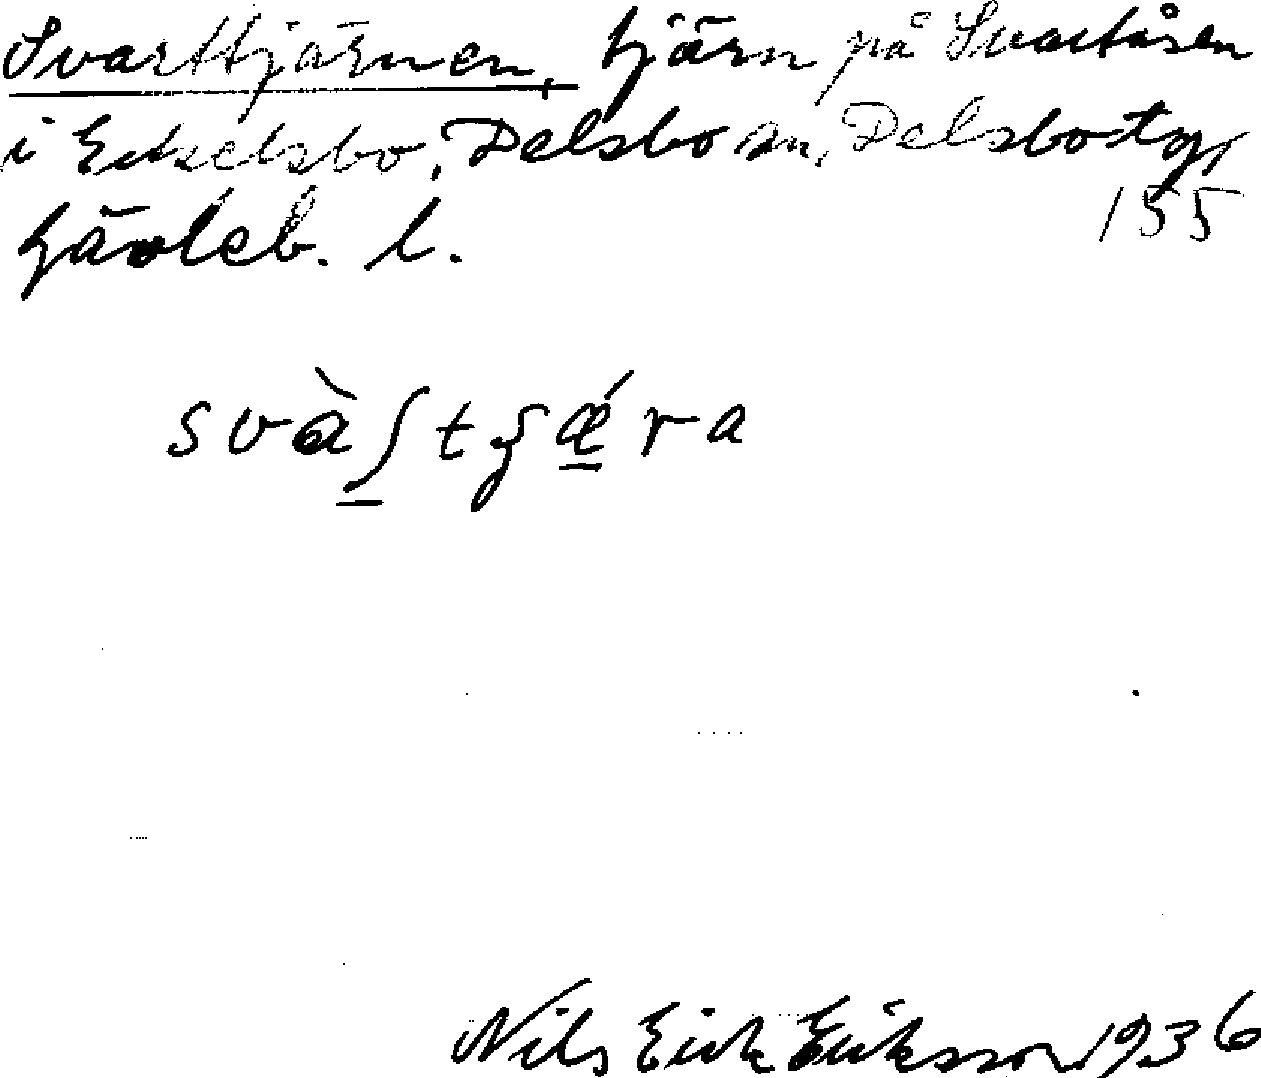 Svarttjärnen, tjärn på Svartåsen
i Eckelsbo, Delsbo sn, Delsbo tg,
Gävleb. l.
155
Nils Erik Eriksson 1936